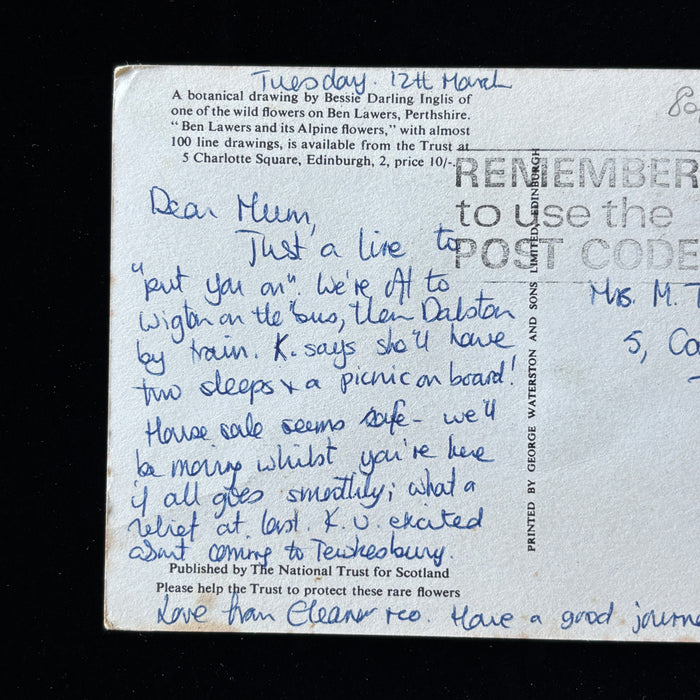 Tuesday. 12th March
A botanical drawing by Bessie Darling Inglis of
one of the wild flowers on Ben Lawers, Perthshire.
"Ben Lawers and its Alpine flowers," with almost
100 line drawings, is available from the Trust at
5 Charlotte Square, Edinburgh, 2, price 10/-.
REMEMBER
to use the
POST CODE
Dear Mum,
Just a line to
"put you on". We're A1 to
Wigton on the 'bus, then Dalston
by train. K. says she'll have
two sleeps & a picnic on board!
House sale seems safe - we'll
be moving whilst you're here
if all goes smoothly; what a
relief at last. K. v. excited
about coming to Tewkesbury.
Published by The National Trust for Scotland
Please help the Trust to protect these rare flowers
Love from Eleanor &co. Have a good journe
PRINTED BY GEORGE WATERSTON AND SONS LIMITED, EDINBURGH
Mrs. M. T
5, Co